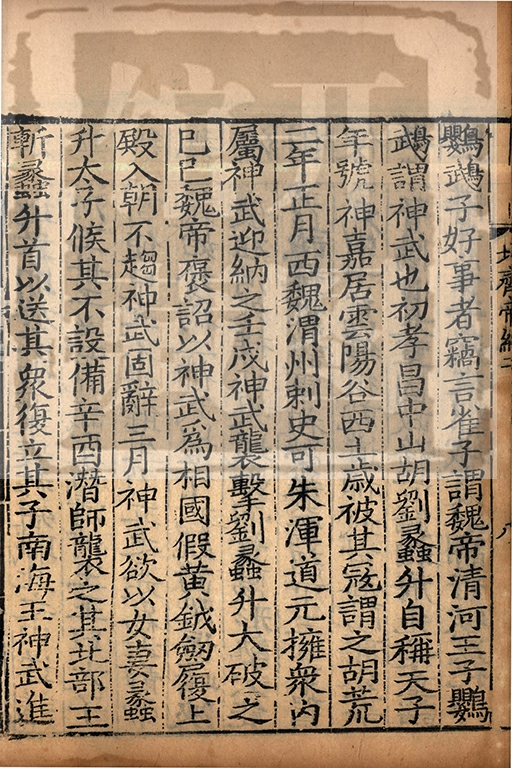 北齊帝紀二
八
鸚鵡子好事者竊言雀子謂魏帝清河王子鸚
鵡謂神武也初孝昌中山胡劉蠡升自稱天子
年號神嘉居雲陽谷西土歲被其寇謂之胡荒
二年正月西魏渭州刺史可朱渾道元擁衆内
屬神武迎納之壬戌神武襲擊劉蠡升大破之
己巳魏帝褒詔以神武爲相國假黄鉞劒履上
殿入朝不趨神武固辭三月神武欲以女妻蠡
升太子候其不設備辛酉潛師襲之其北部王
斬蠡升首以送其衆復立其子南海王神武進